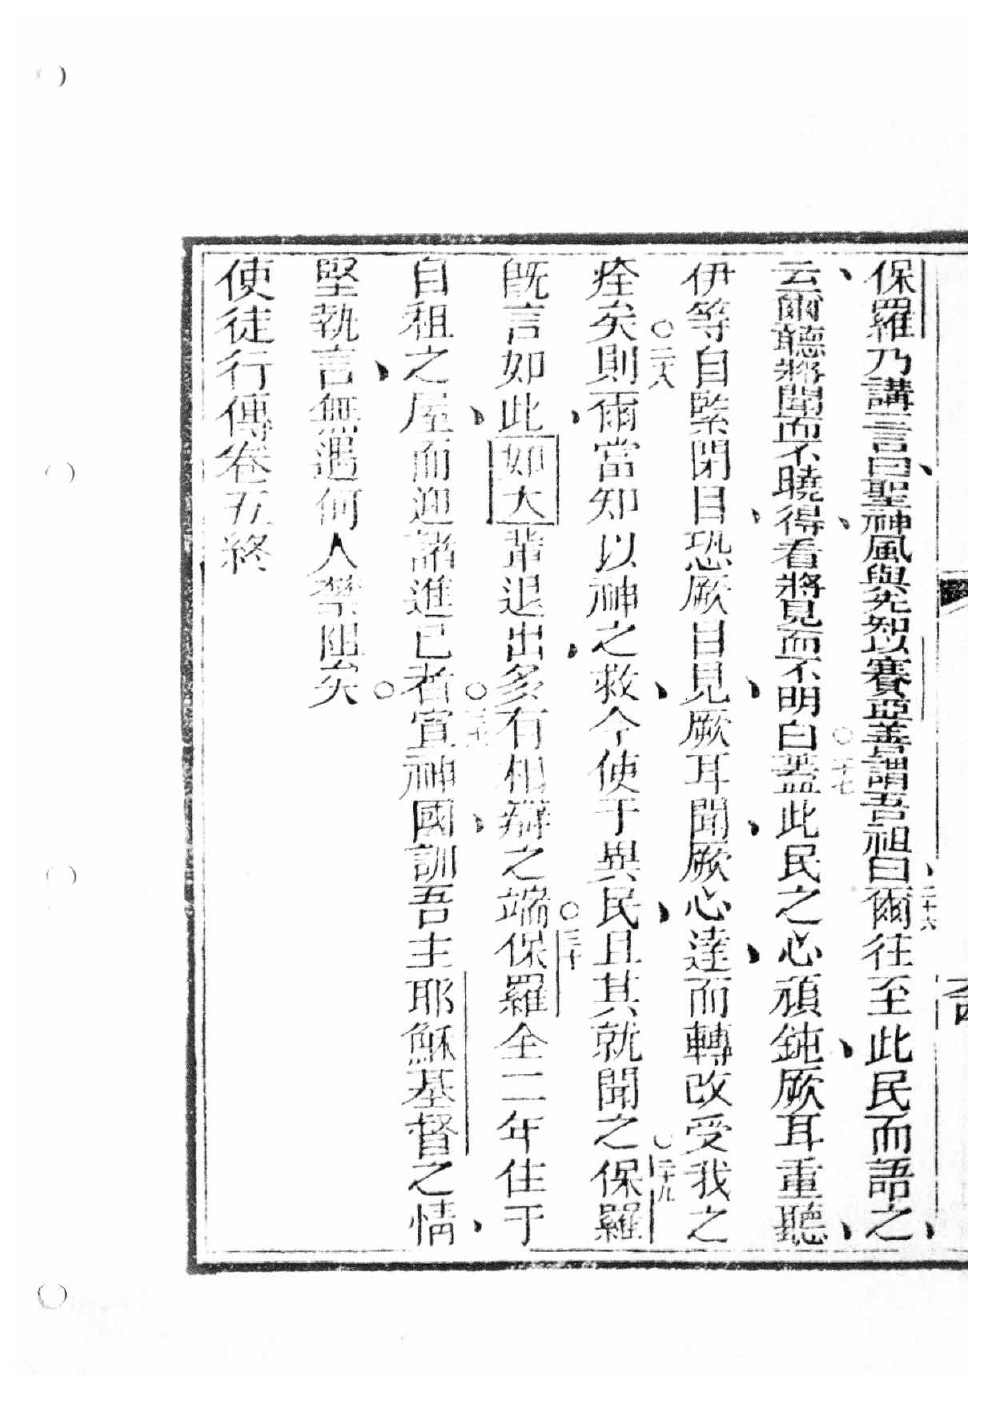 保羅乃講一言曰聖神風與先知以賽亞善謂吾祖曰、二十六爾往至此民而語之、
云、爾聽將聞而不曉得、看將見而不明白○二十七蓋此民之心頑鈍、厥耳重聽、
伊等自緊閉目、恐厥目見、厥耳聞、厥心達、而轉改受我之
痊矣○二十八則爾當知以神之救、今使于異民、且其就聞之○二十九保羅
既言如此、如大輩退出、多有相辯之端○三十保羅全二年住于
自租之屋、而迎諸進己者○三十一宣神國、訓吾主耶穌基督之情、
堅執言、無遇何人禁阻矣○
使徒行傳卷五終